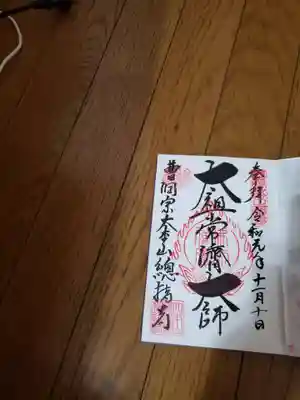 参拝令和元年十一月十日
太祖常濟大師
曹洞宗大本山總持寺